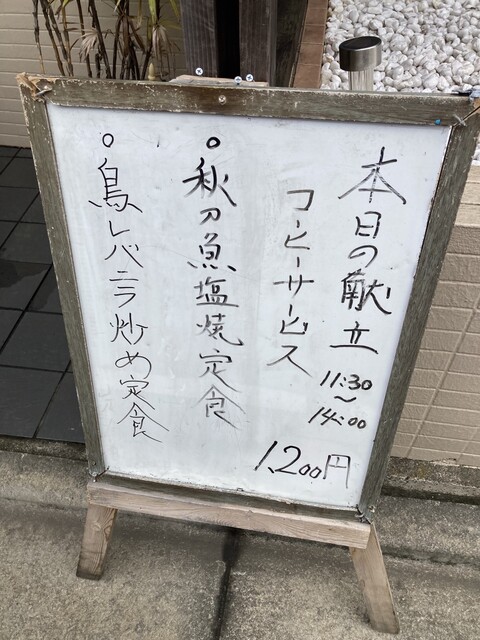 本日の献立
11:30
〜
14:00
コーヒーサービス
1,200円
秋刀魚塩焼定食
鳥レバニラ炒め定食